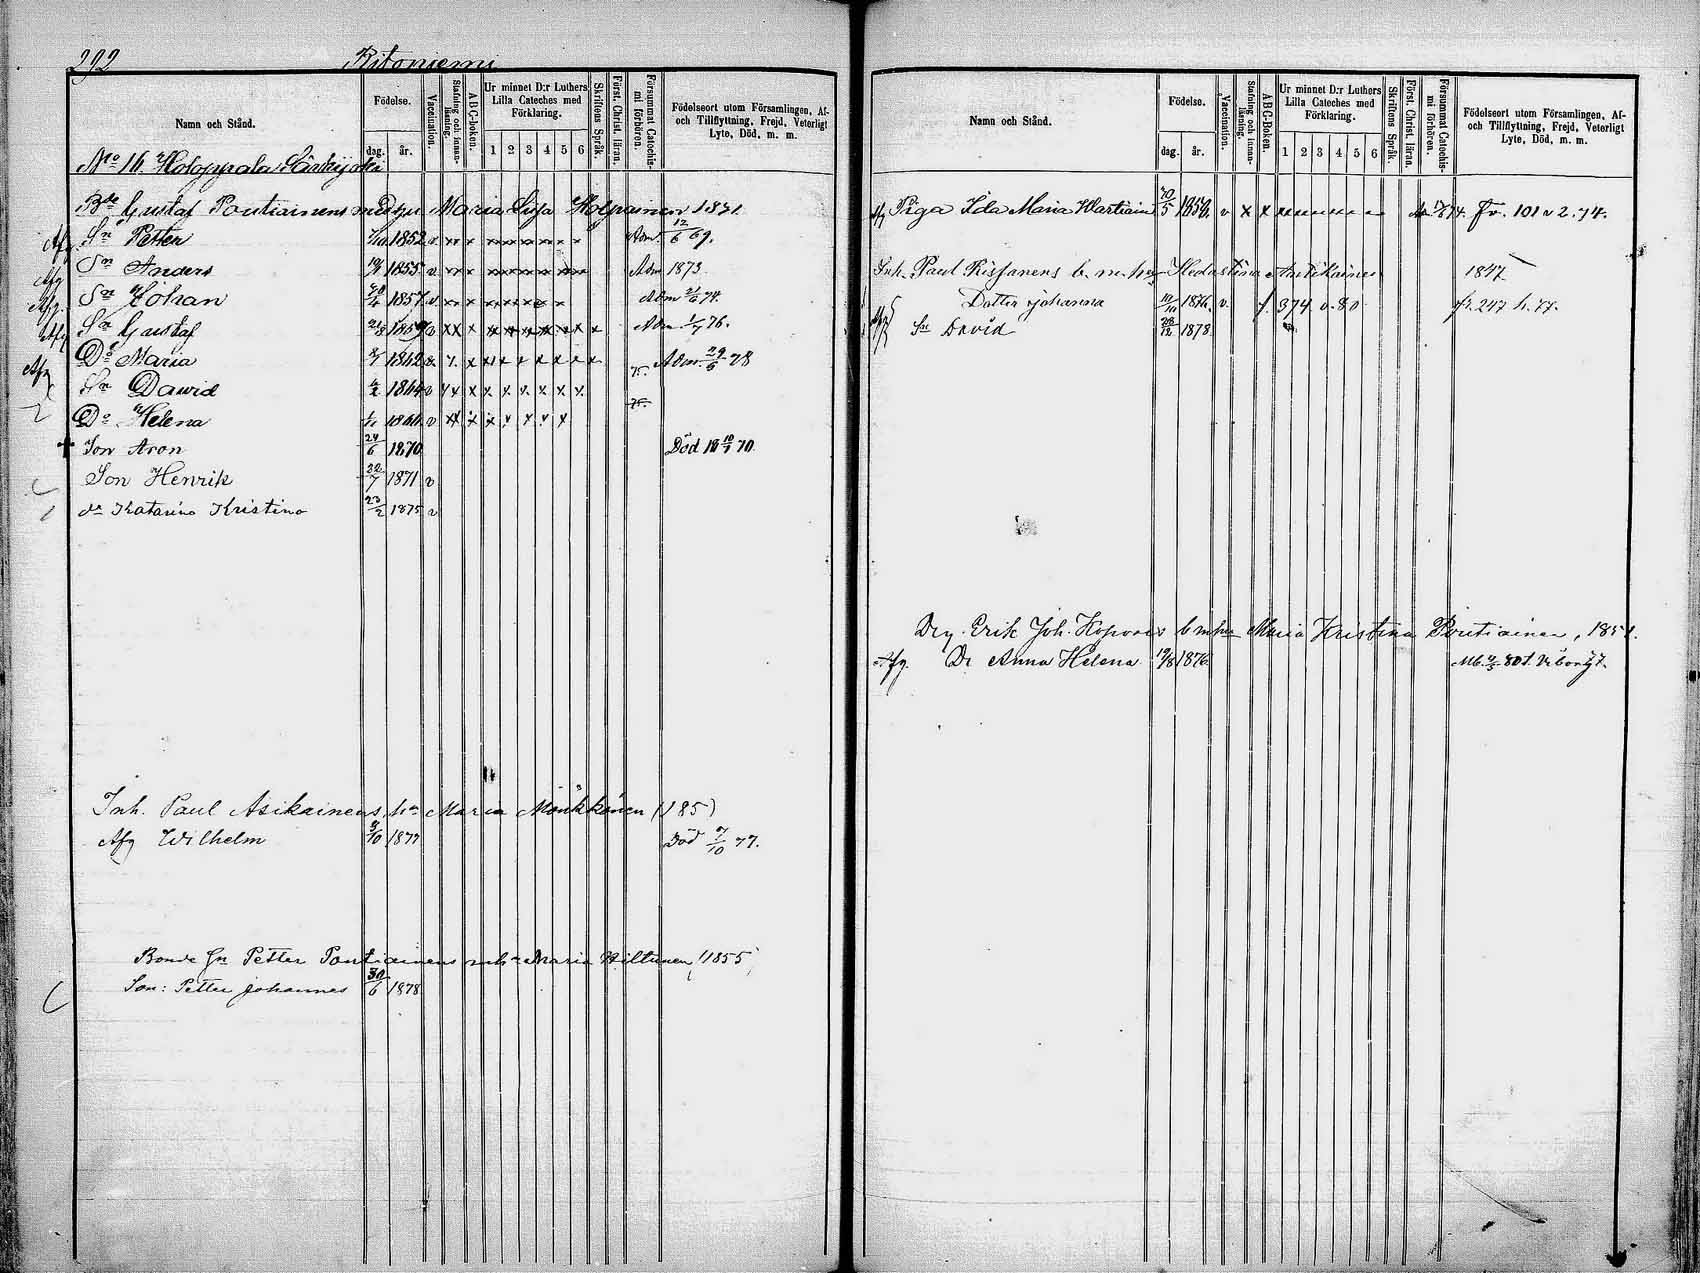 292 Ritoniemi
Namn och Stånd.
Födelse.
dag. år.
Vaccination.
Stafning och innanläsning.
ABC-boken.
Ur minnet D:r Luthers Lilla Cateches med Förklaring.
1 2 3 4 5 6
Skriftens Språk.
Först. Christ. läran.
Försummat Catechismi förhören.
Födelseort utom Församlingen, Af- och Tillflyttning, Frejd, Veterligt Lyte, Död, m. m.
No 16. Holoppala
Bde Gustaf Pontiainens med Maria Lisa Holpainen 1831.
Afg. Sn Petter 1852 v Adm. 12/6 69.
Afg Sn Anders 1855 v Adm 1873
Afg. Sn Johan 1857 v Adm 21/6 74.
Afg Sn Gustaf 1859 v Adm 1/7 76.
Afg Do Maria 1862 Adm. 29/6 78
Sn Dawid 1864 v
Do Helena 1866 v
+ Son Aron 24/6 1870 Död 18 10/7 70
Son Henrik 22/7 1871 v
dr Katarina Kristina 23/2 1875 v
Inh. Paul Asikainens, hu Maria Mönkkönen (185)
Afg Wilhelm 9/10 1877 Död 9/10 77.
Bonde Sn Petter Pontiainens m h Maria Hiltunen, 1855
Son: Petter Johannes 30/6 1878
Namn och Stånd.
Födelse.
dag. år.
Vaccination.
Stafning och innanläsning.
ABC-boken.
Ur minnet D:r Luthers Lilla Cateches med Förklaring.
1 2 3 4 5 6
Skriftens Språk.
Först. Christ. läran.
Försummat Catechismi förhören.
Födelseort utom Församlingen, Af- och Tillflyttning, Frejd, Veterligt Lyte, Död, m. m.
Afg Piga Ida Maria Wartiain v fr. 101 v 2. 74.
Inh. Paul Rissanens b. m. hu Hedastina Antikainen 1847
Dotter Johanna 11/10 1876 v. f. 374 v. 80 fr. 247 h. 77.
Sn David 28/12 1878
Erik Joh. Koponens b m hu Maria Kristina Pontiainen, 1851.
Afg. Dr Anna Helena 19/8 1876 80 t. Viborg